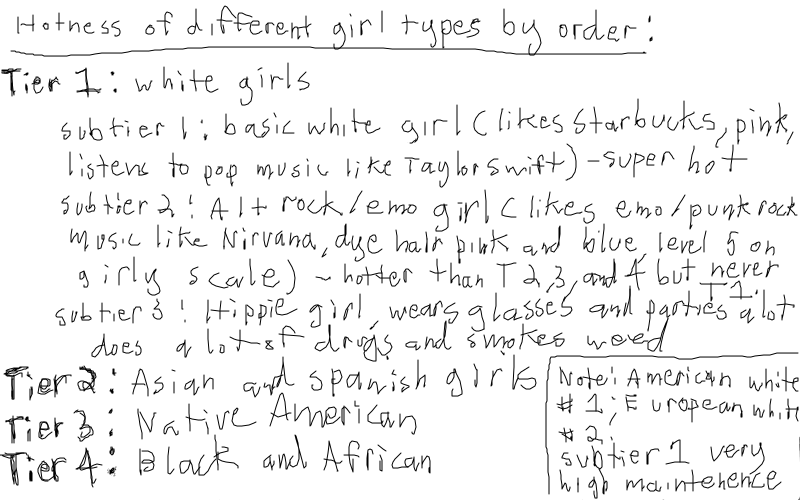 Hotness of different girl types by order:
Tier 1: white girls
subtier 1: basic white girl (likes Starbucks, pink,
listens to pop music like Taylor Swift) - super hot
subtier 2: Alt rock/emo girl (likes emo/punk rock
music like Nirvana, dye hair pink and blue, level 5 on
girly scale) ~ hotter than T 2,3, and 4 but never
T1.
subtier 3: Hippie girl, wears glasses and parties a lot
does a lot of drugs and smokes weed
Tier 2: Asian and spanish girls
Tier 3: Native American
Tier 4: Black and African
Note: American white
#1; European white
#2;
subtier 1 very
high maintenence